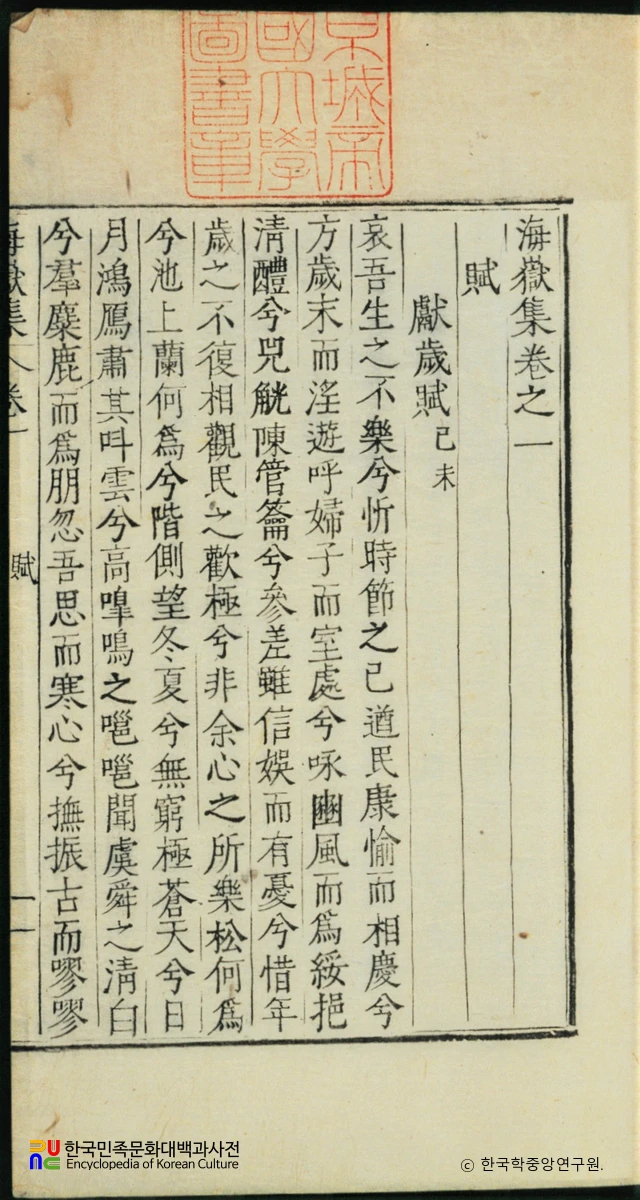 京城帝
國大學
圖書章
海嶽集卷之一
賦
獻歲賦己未
哀吾生之不樂兮忻時節之已遒民康愉而相慶兮
方歲末而淫遊呼婦子而室處兮咏豳風而爲綏挹
淸醴兮兕觥陳管籥兮參差雖信娛而有憂兮惜年
歲之不復相觀民之歡極兮非余心之所樂松何爲
兮池上蘭何爲兮階側望冬夏兮無窮極蒼天兮日
月鴻鴈肅其叫雲兮高嘷鳴之嗈嗈聞虞舜之淸白
兮羣麋鹿而爲朋忽吾思而寒心兮撫振古而嘐嘐
海嶽集 卷一 賦 一
한국민족문화대백과사전
Encyclopedia of Korean Culture
ⓒ 한국학중앙연구원.